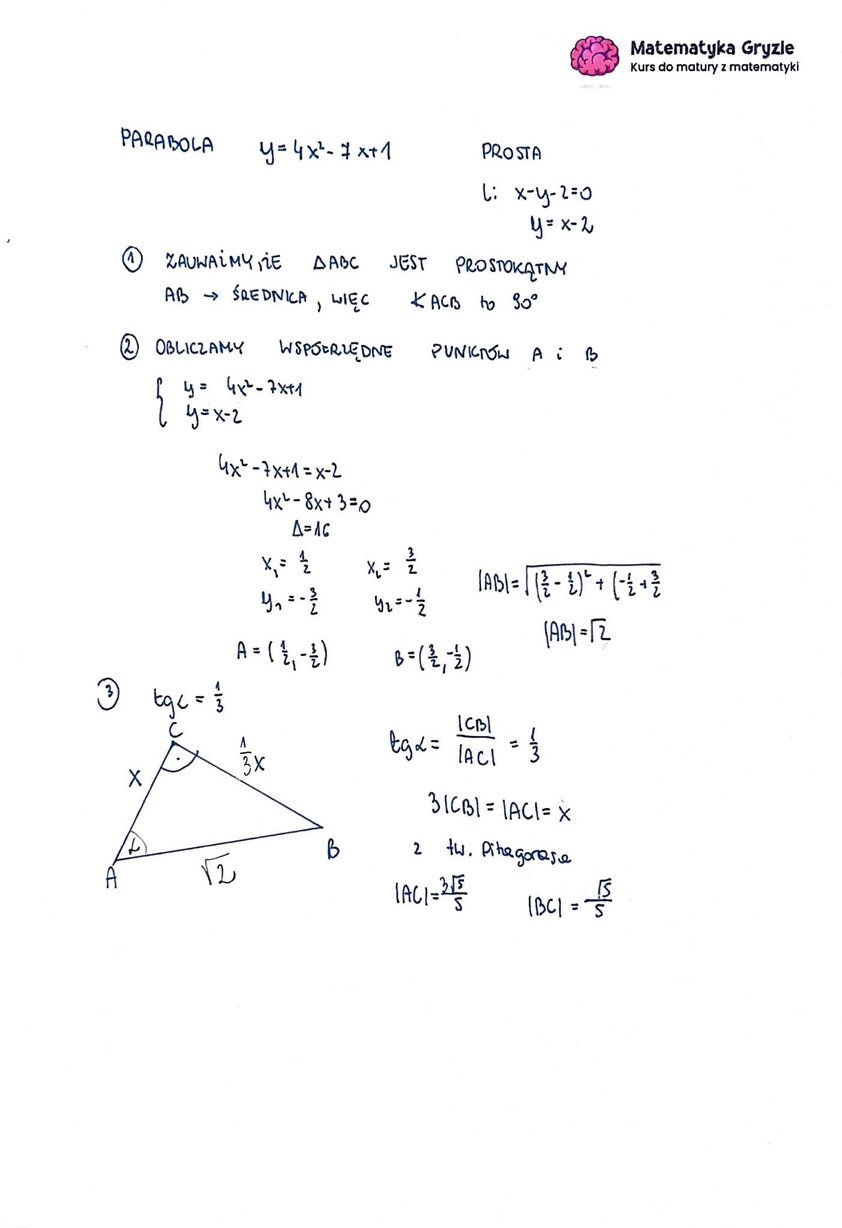 Matematyka Gryzie
Kurs do matury z matematyki
PARABOLA y = 4x² - 7x+1 PROSTA
l: x-y-2=0
y = x-2
① ZAUWAŻMY, ŻE △ABC JEST PROSTOKĄTNY
AB → ŚREDNICA, WIĘC ∢ACB to 90°
② OBLICZAMY WSPÓŁRZĘDNE PUNKTÓW A i B
{ y = 4x² - 7x+1
y = x-2
4x² - 7x+1 = x-2
4x² - 8x + 3 = 0
Δ=16
x₁ = 1/2 x₂ = 3/2
y₁ = -3/2 y₂ = -1/2
|AB| = √(3/2 - 1/2)² + (-1/2 + 3/2
|AB| = √2
A = (1/2, -3/2) B = (3/2, -1/2)
③ tgα = 1/3
C
x
1/3 x
α
A
√2
B
tgα = |CB|/|AC| = 1/3
3|CB| = |AC| = x
z tw. Pitagorasa
|AC| = 3√5/5 |BC| = √5/5